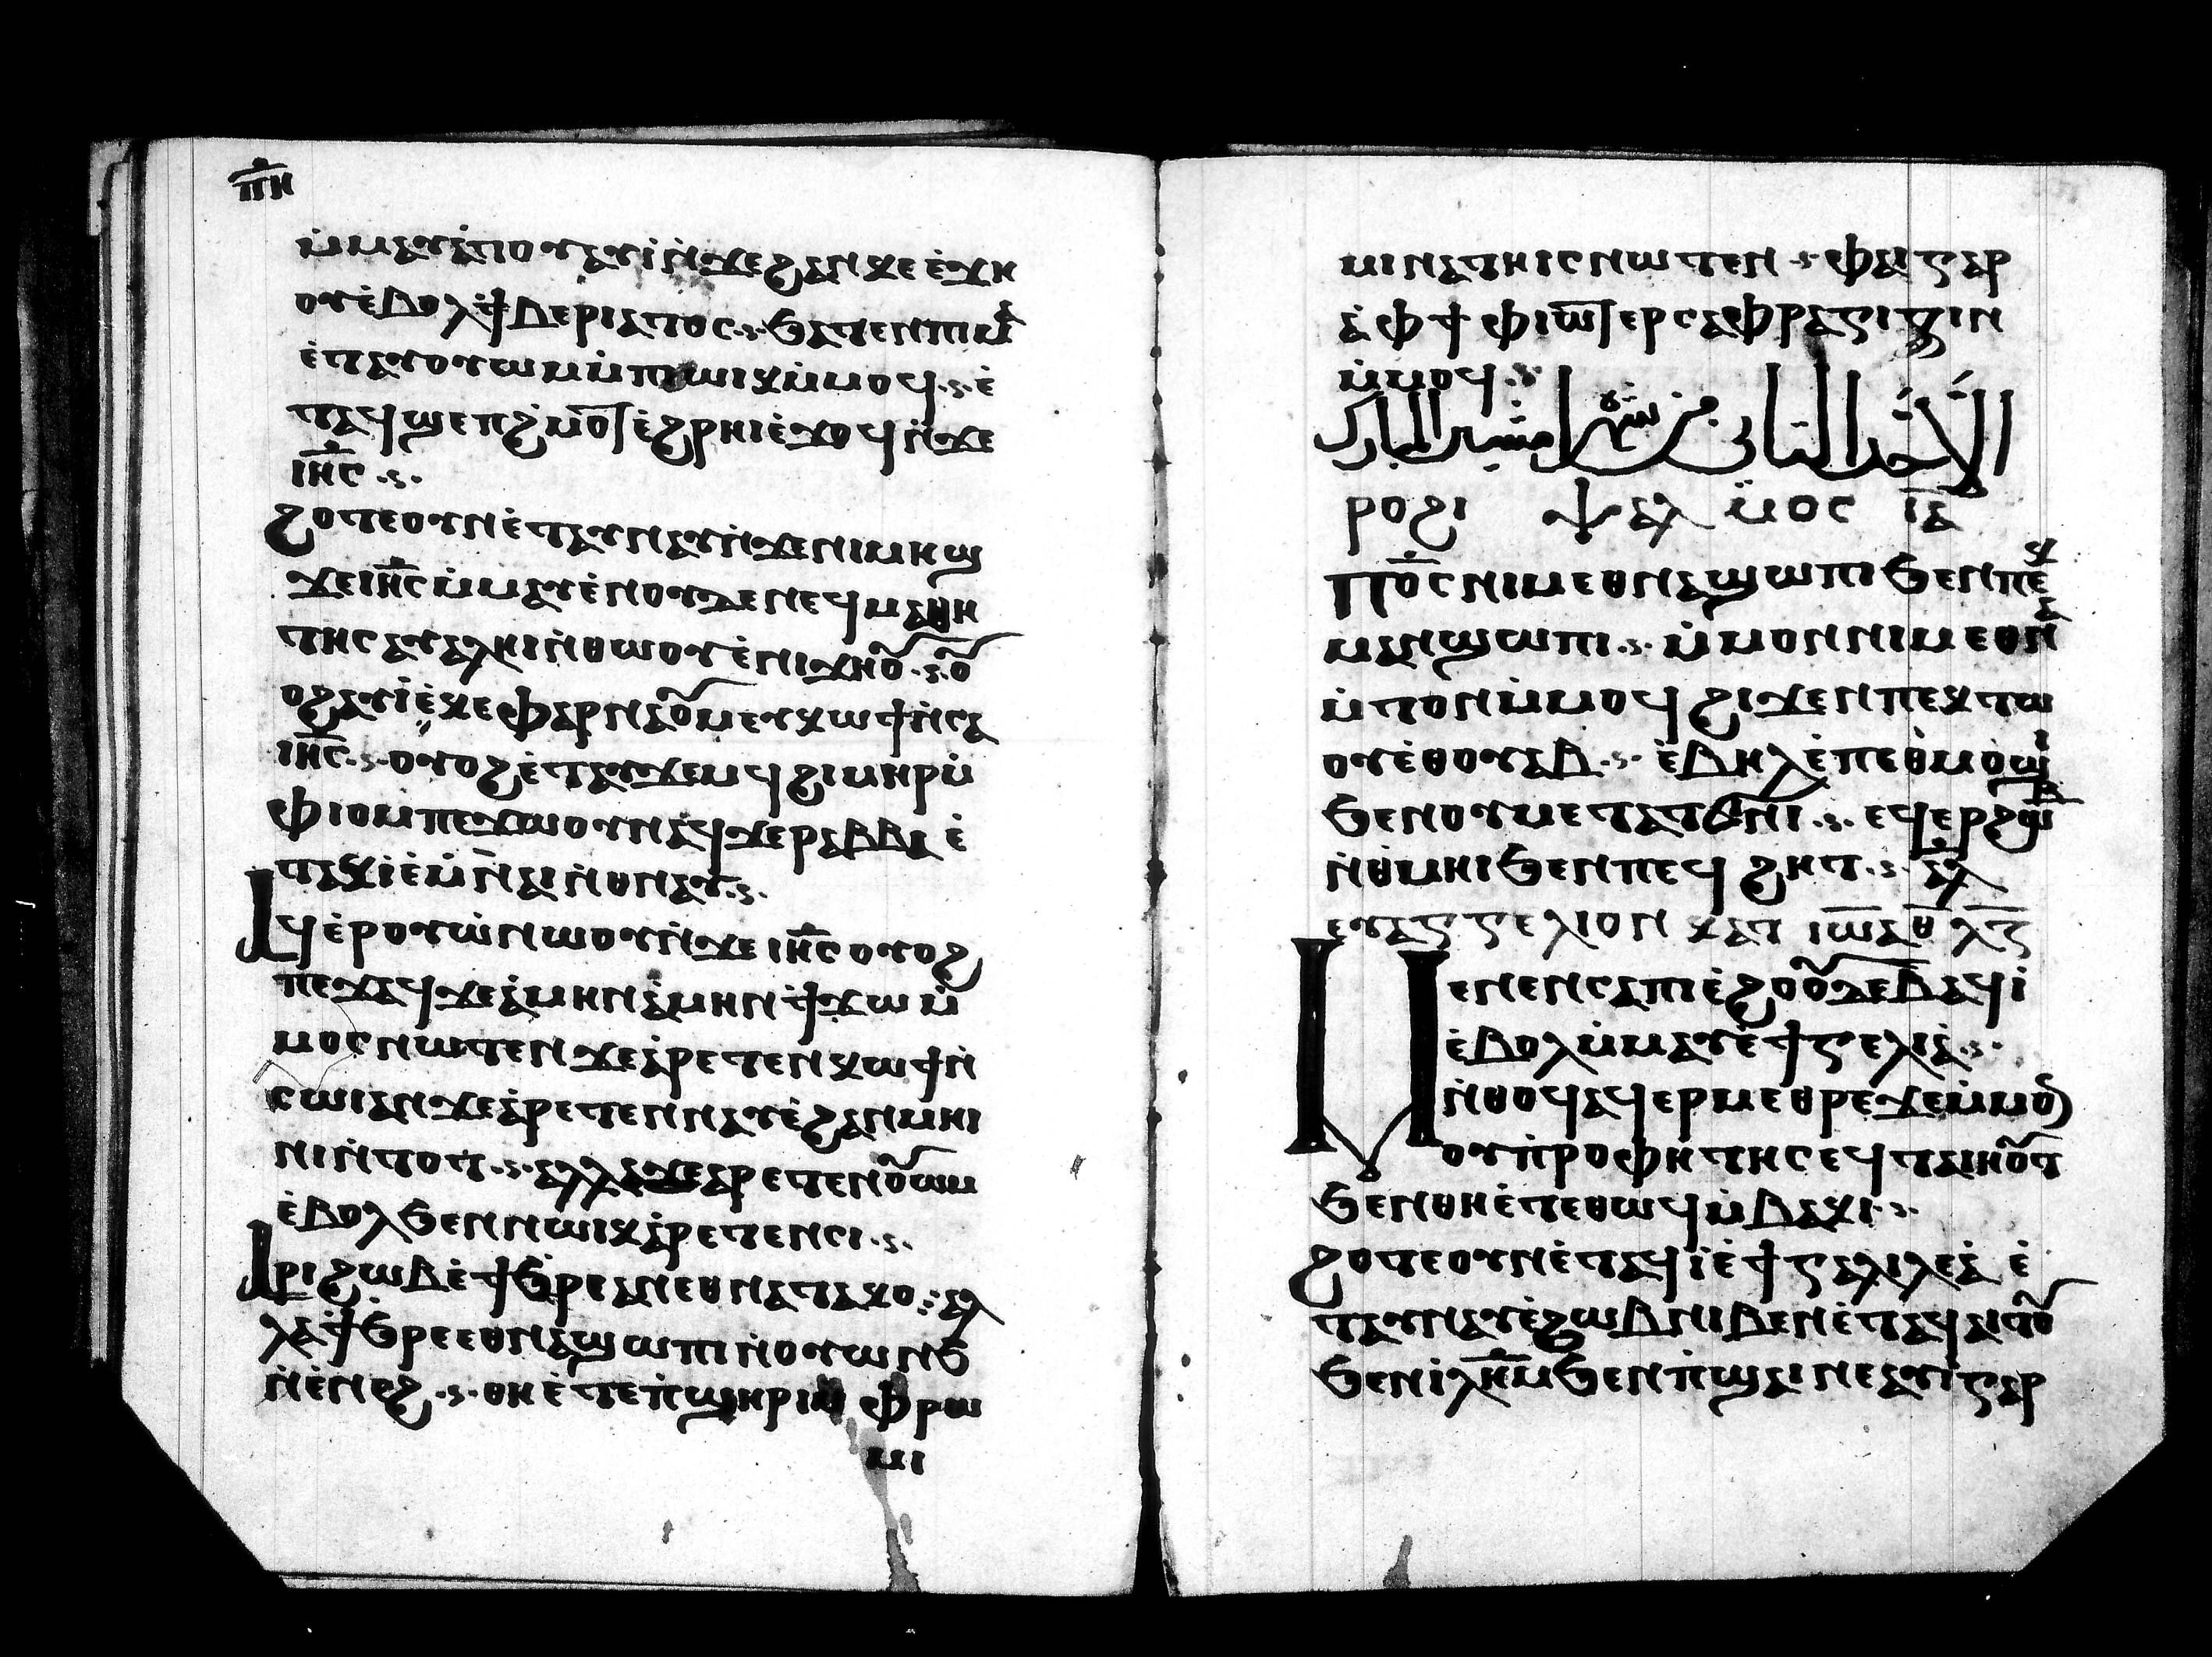 ⲡ̅ⲏ
ⲙ̇ⲙⲁⲩⲁ̇ⲡⲟⲩⲁⲩⲓ̇ⲛ̇ϫⲉϩⲁⲛⲕⲉⲉ̇ϫⲏ
ⲟⲩⲉ̇ⲃⲟⲗϯⲃⲉⲣⲓⲁⲇⲟⲥ·ⲋ·ϧⲁⲧⲉⲛⲡⲓⲙⲁ̇
ⲉ̇ⲧⲁⲩⲟⲩⲱⲙⲙ̇ⲡⲓⲱⲓⲕⲙ̇ⲙⲟϥ·ⲋ·ⲉ̇
ⲧⲁϥϣⲉⲡϩ̇ⲙⲟ̅ⲧⲉ̇ϩⲣⲏⲓⲉ̇ϫⲟϥⲛ̇ϫⲉ
ⲓⲏ̅ⲥ·ⲋ·
ϩⲟⲧⲉⲟⲩⲛⲉ̇ⲧⲁⲩⲛⲁⲩⲛ̇ϫⲉⲛⲓⲙⲏϣ
ϫⲉⲓⲏ̅ⲥⲙ̇ⲙⲁⲩⲉ̇ⲛⲟⲩϫⲉⲛⲉϥⲙⲁⲑⲏ
ⲧⲏⲥⲁⲩⲁⲗⲏⲓⲛ̇ⲑⲱⲟⲩⲉ̇ⲛⲓϫⲏⲟ̅ⲩ·ⲋ·ⲟ̅ⲩ
ⲟϩⲁⲩⲓ̇ⲉ̇ⲕⲉⲫⲁⲣⲛⲁⲟ̅ⲩⲙⲉⲩⲕⲱϯⲛ̇ⲥⲁ
ⲓⲏ̅ⲥ·ⲋ·ⲟⲩⲟϩⲉ̇ⲧⲁⲩϫⲉⲙϥϩⲓⲙⲏⲣⲙ̇
ⲫⲓⲟⲙⲡⲉϫⲱⲟⲩⲛⲁϥϫⲉⲣⲁⲃⲃⲓⲉ̇
ⲧⲁⲕⲓ̇ⲉ̇ⲙ̇ⲛⲁⲓⲛ̇ⲑⲛⲁⲩ·ⲋ·
ⲁϥⲉ̇ⲣⲟⲩⲱ̇ⲛⲱⲟⲩⲛ̇ϫⲉⲓⲏ̅ⲥⲟⲩⲟϩ
ⲡⲉϫⲁϥϫⲉⲁ̇ⲙⲏⲛⲁ̇ⲙⲏⲛϯϫⲱⲙ̇
ⲙⲟⲥⲛⲱⲧⲉⲛϫⲉⲁ̇ⲣⲉⲧⲉⲛⲕⲱϯⲛ̇
ⲥⲱⲓⲁⲛϫⲉⲁ̇ⲣⲉⲧⲉⲛⲛⲁⲩⲉ̇ϩⲁⲛⲙⲏⲓ
ⲛⲓⲛ̇ⲧⲟⲧ·ⲋ·ⲁⲗⲗⲁϫⲉⲁⲣⲉⲧⲉⲛⲟ̅ⲩⲱⲙ
ⲉ̇ⲃⲟⲗϧⲉⲛⲛⲱⲓⲕⲁ̇ⲣⲉⲧⲉⲛⲥⲓ·ⲋ·
ⲁⲣⲓϩⲱⲃⲉ̇ϯϧ̇ⲣⲉⲁⲛⲉⲑⲛⲁⲧⲁⲕⲟ·ⲋ·ⲁⲗ
ⲗⲁϯϧⲣⲉⲉⲑⲛⲁϣⲱⲡⲓⲛ̇ⲟⲩⲱⲛϧ
ⲛ̇ⲉ̇ⲛⲉϩ·ⲋ·ⲑⲏⲉ̇ⲧⲉⲡ̇ϣⲏⲣⲓⲙ̇ⲫⲣⲱ
ⲙⲓ
ⲙⲓⲛⲁⲧⲏⲓⲥⲛⲱⲧⲉⲛ·ⲋ·ⲫⲁⲓⲅⲁⲣ
ⲁ̇ⲫϯⲫⲓⲱ̅ⲧⲉⲣⲥⲫⲣⲁⲅⲓⲍⲓⲛ
ⲙ̇ⲙⲟϥ·ⲋ·
الاحد الثاني من شهر امشير المبارك
ⲣⲟϩⲓ ⲯⲁⲗⲙⲟⲥ ⲓ̅ⲇ
ⲡⲟ̅ⲥⲛⲓⲙⲉⲑⲛⲁϣⲱⲡⲓϧⲉⲛⲡⲉⲕ
ⲙⲁⲛϣⲱⲡⲓ·ⲋ·ⲙ̇ⲙⲟⲛⲛⲓⲙⲉⲑⲛⲁ
ⲙ̇ⲧⲟⲛⲙ̇ⲙⲟϥϩⲓϫⲉⲛⲡⲉⲕⲧⲱ
ⲟⲩⲉ̇ⲑⲟⲩⲁⲃ·ⲋ·ⲉ̇ⲃⲏⲗⲉ̇ⲡⲉⲑⲙⲟ̇ϣⲓ
ϧⲉⲛⲟⲩⲙⲉⲧⲁⲧϭⲛⲓ·ⲋ·ⲉϥⲉⲣϩⲱⲃ
ⲛ̇ⲑⲙⲏⲓϧⲉⲛⲡⲉϥϩⲏⲧ·ⲋ·ⲁ̅ⲗ
ⲉⲩⲁⲅⲅⲉⲗⲓⲟⲛ ⲕⲁⲧ ⲓⲱ̅ⲁ ⲑ̅ ⲗ̅ⲅ
ⲙⲉⲛⲉⲛⲥⲁⲡⲓⲉ̇ϩⲟⲟ̅ⲩϫⲉⲃ̅ⲁϥⲓ̇
ⲉ̇ⲃⲟⲗⲙ̇ⲙⲁⲩⲉ̇ϯⲅⲉⲗⲓⲁ̇·ⲋ·
ⲛ̇ⲑⲟϥⲁϥⲉⲣⲙⲉⲑⲣⲉϫⲉⲙ̇ⲙⲟⲛ
ⲟⲩⲡ̇ⲣⲟⲫⲏⲧⲏⲥⲉϥⲧⲁⲓⲏⲟ̅ⲩⲧ
ϧⲉⲛⲑⲏⲉ̇ⲧⲉⲑⲱϥⲙ̇ⲃⲁⲕⲓ·ⲋ·
ϩⲟⲧⲉⲟⲩⲛⲉ̇ⲧⲁϥⲓ̇ⲉ̇ϯⲅⲁⲗⲓⲗⲉⲁ̇ ⲉ̇
ⲧⲁⲩⲛⲁⲩⲉ̇ϩⲱⲃⲛⲓⲃⲉⲛⲉ̇ⲧⲁϥⲁⲓⲧⲟ̅ⲩ
ϧⲉⲛⲓ̇ⲗⲏ̅ⲙϧⲉⲛⲡ̇ϣⲁⲓⲛⲉⲁⲩⲓ̇ⲅⲁⲣ